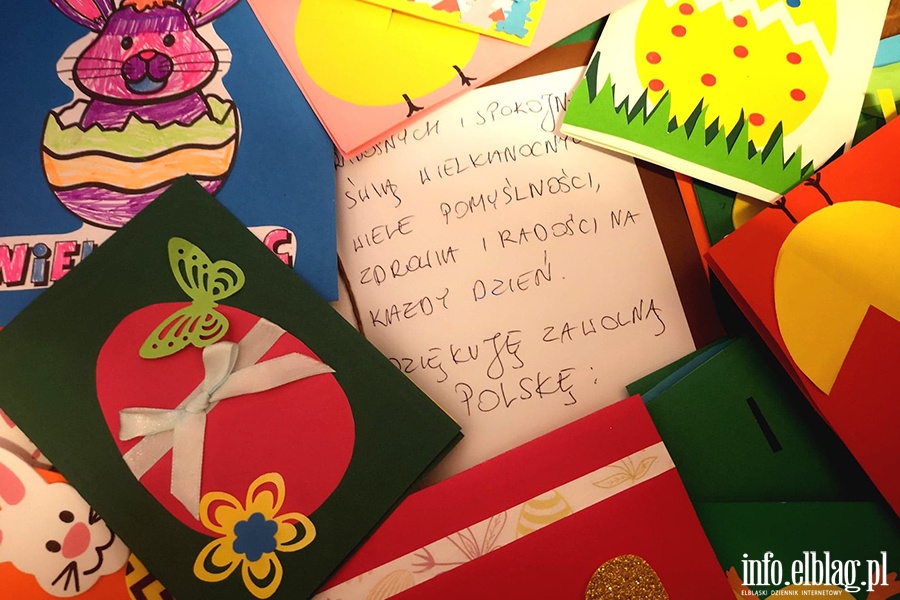 RADOSNYCH I SPOKOJN
ŚWIĄ WIELKANOCNYC
WIELE POMYŚLNOŚCI,
ZDROWIA I RADOŚCI NA
KAŻDY DZIEŃ.
DZIĘKUJĘ ZA WOLNĄ
POLSKĘ:
WIEL
info.elblag.pl
ELBLĄSKI DZIENNIK INTERNETOWY